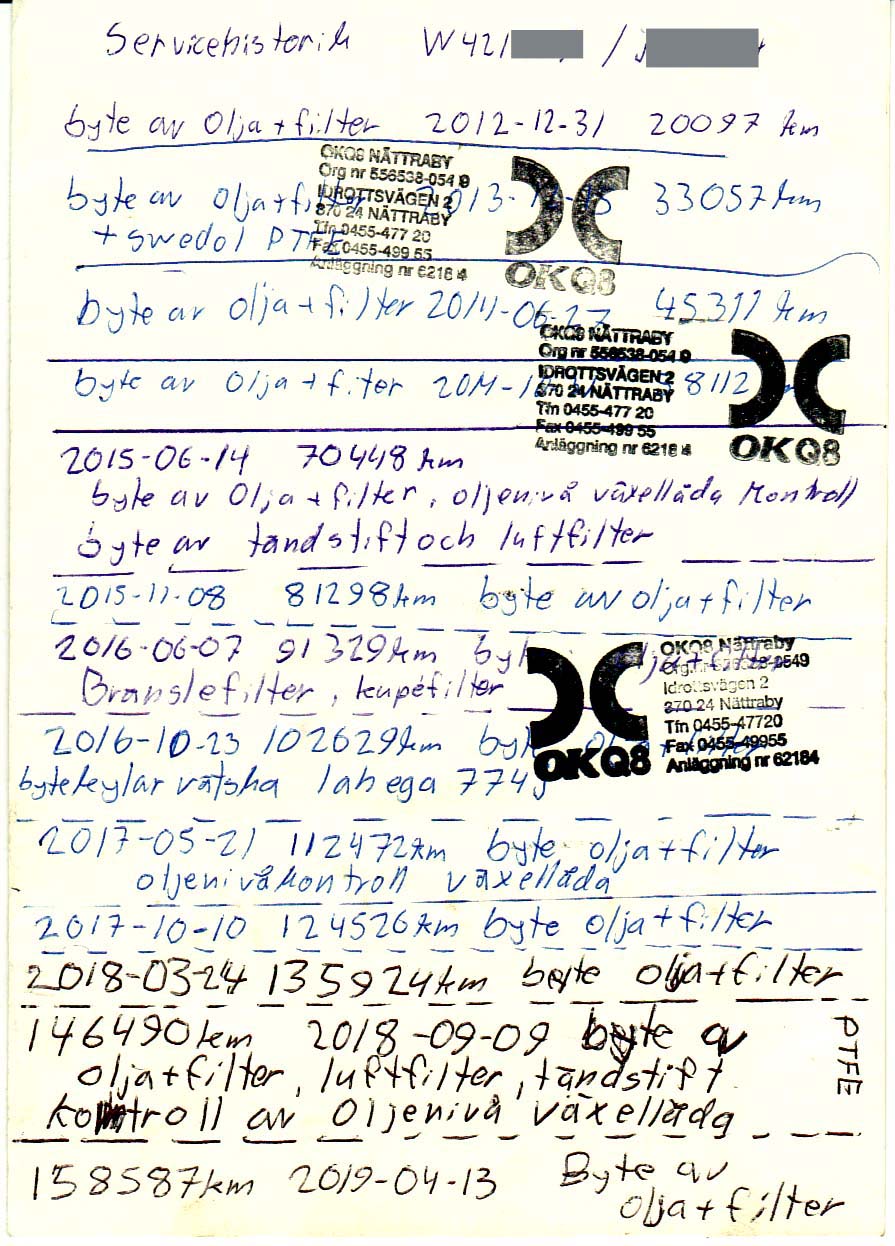 Servicehistorik W421 / J
byte av Olja + filter 2012-12-31 20097 km
OKQ8 NÄTTRABY
Org nr 556538-054 9
IDROTTSVÄGEN 2
370 24 NÄTTRABY
Tfn 0455-477 20
Fax 0455-499 55
Anläggning nr 6218 4
OKQ8
byte av olja + filter 2013-12-15 33057 km
+ swedol PTFE
byte av olja + filter 2014-06-27 45311 km
OKQ8 NÄTTRABY
Org nr 556538-054 9
IDROTTSVÄGEN 2
370 24 NÄTTRABY
Tfn 0455-477 20
Fax 0455-499 55
Anläggning nr 6218 4
OKQ8
byte av olja + filter 2014-1 8112
2015-06-14 70448 km
byte av Olja + filter, oljenivå växellåda kontroll
byte av tändstift och luftfilter
2015-11-08 81298 km byte av olja + filter
2016-06-07 91329 km byt olja + filter
Bränslefilter, kupéfilter
OKQ8 Nättraby
Org.nr 556538-0549
Idrottsvägen 2
370 24 Nättraby
Tfn 0455-47720
Fax 0455-49955
Anläggning nr 62184
OKQ8
2016-10-23 102629 km byt olja + filter
byte kylar vätska lahega 774
2017-05-21 112472 km byte olja + filter
oljenivåkontroll växellåda
2017-10-10 124526 km byte olja + filter
2018-03-24 135924 km byte olja + filter
146490 km 2018-09-09 byte av
olja + filter, luftfilter, tändstift
Kontroll av Oljenivå växellåda
PTFE
158587 km 2019-04-13 Byte av
olja + filter